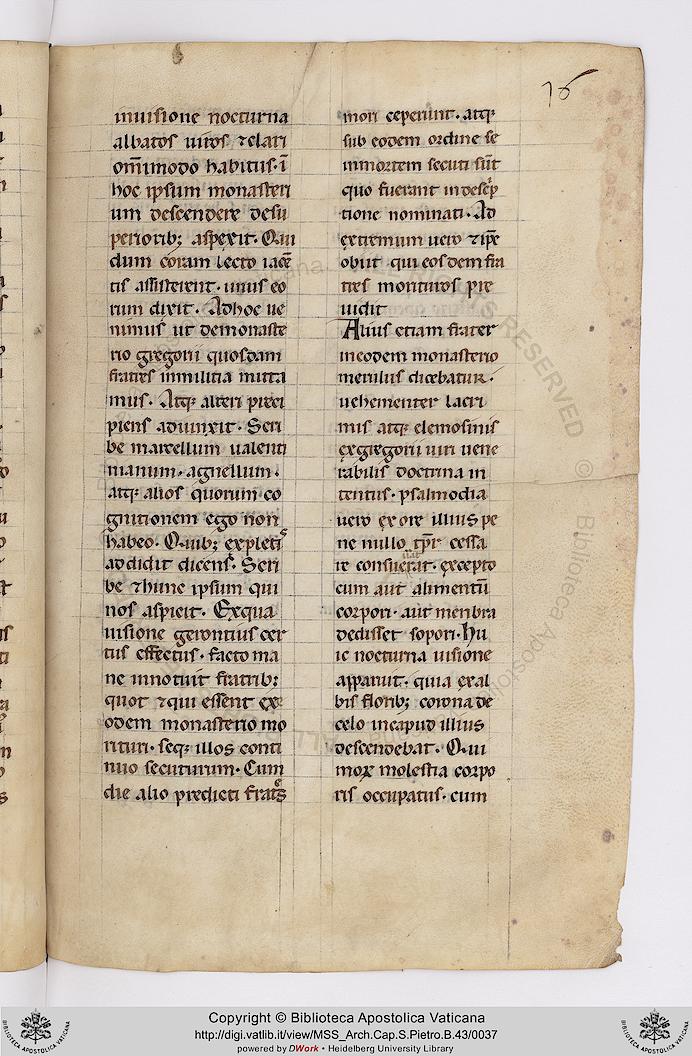 76
inuisione nocturna
albatos uiros ⁊clari
om̅imodo habitus· i̅
hoc ipsum monasteri
um descendere desu
periorib; aspexit. Qui
dum coram lecto iace̅
tis assisterent· unus eo
rum dixit. Adhoc ue
nimus ut demonaste
rio gregorii quosdam
fratres inmilitia mitta
mus. Atq; alteri preci
piens adiunxit. Scri
be marcellum ualenti
nianum. agnellum.
atq; alios quorum co
gnitionem ego non
habeo. Quib; expletis
addidit dicens. Scri
be ⁊hunc ipsum qui
nos aspicit. Exqua
uisione gerontius cer
tus effectus. facto ma
ne innotuit fratrib;
quot ⁊qui essent ex
odem monasterio mo
rituri. seq; illos conti
nuo secuturum. Cum
die alio predicti fratres
mori ceperunt. atq;
sub eodem ordine se
inmortem secuti su̅t
quo fuerant indesc͛p
tione nominati. Ad
extremum uero ⁊ip̅e
obiit. qui eosdem fra
tres morituros pre
uidit
Alius etiam frater
ineodem monasterio
merulus dicebatur.
uehementer lacri
mis atq; elemosinis
exgregorii uiri uene
rabilis doctrina in
tentus. psalmodia
uero ex ore illius pe
ne nullo tp̅r cessa
re consuerat. excepto
cum aut alimentu̅
corpori. aut menbra
dedisset sopori. Hu
ic nocturna uisione
apparuit. quia exal
bis florib; corona de
celo incapud illius
descendebat. Qui
mox molestia corpo
ris occupatus. cum
Copyright © Biblioteca Apostolica Vaticana
http://digi.vatlib.it/view/MSS_Arch.Cap.S.Pietro.B.43/0037
powered by DWork • Heidelberg University Library